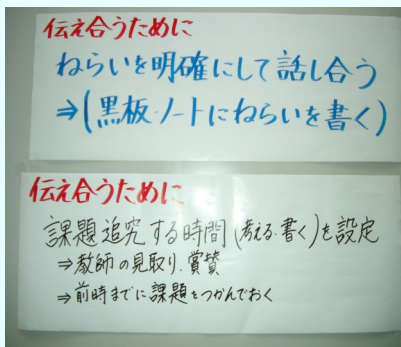 伝え合うために
ねらいを明確にして話し合う
⇒(黒板・ノートにねらいを書く)
伝え合うために
課題追究する時間(考える・書く)を設定
⇒教師の見取り・賞賛
⇒前時までに課題をつかんでおく